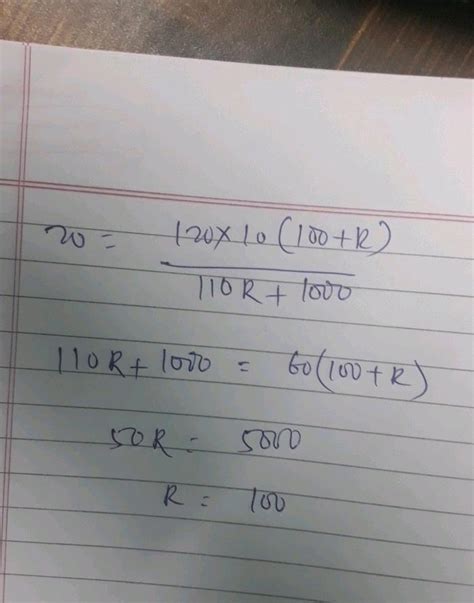 20 = 120×10(100+R)
110R + 1000
110R + 1000 = 60(100+R)
50R = 5000
R = 100